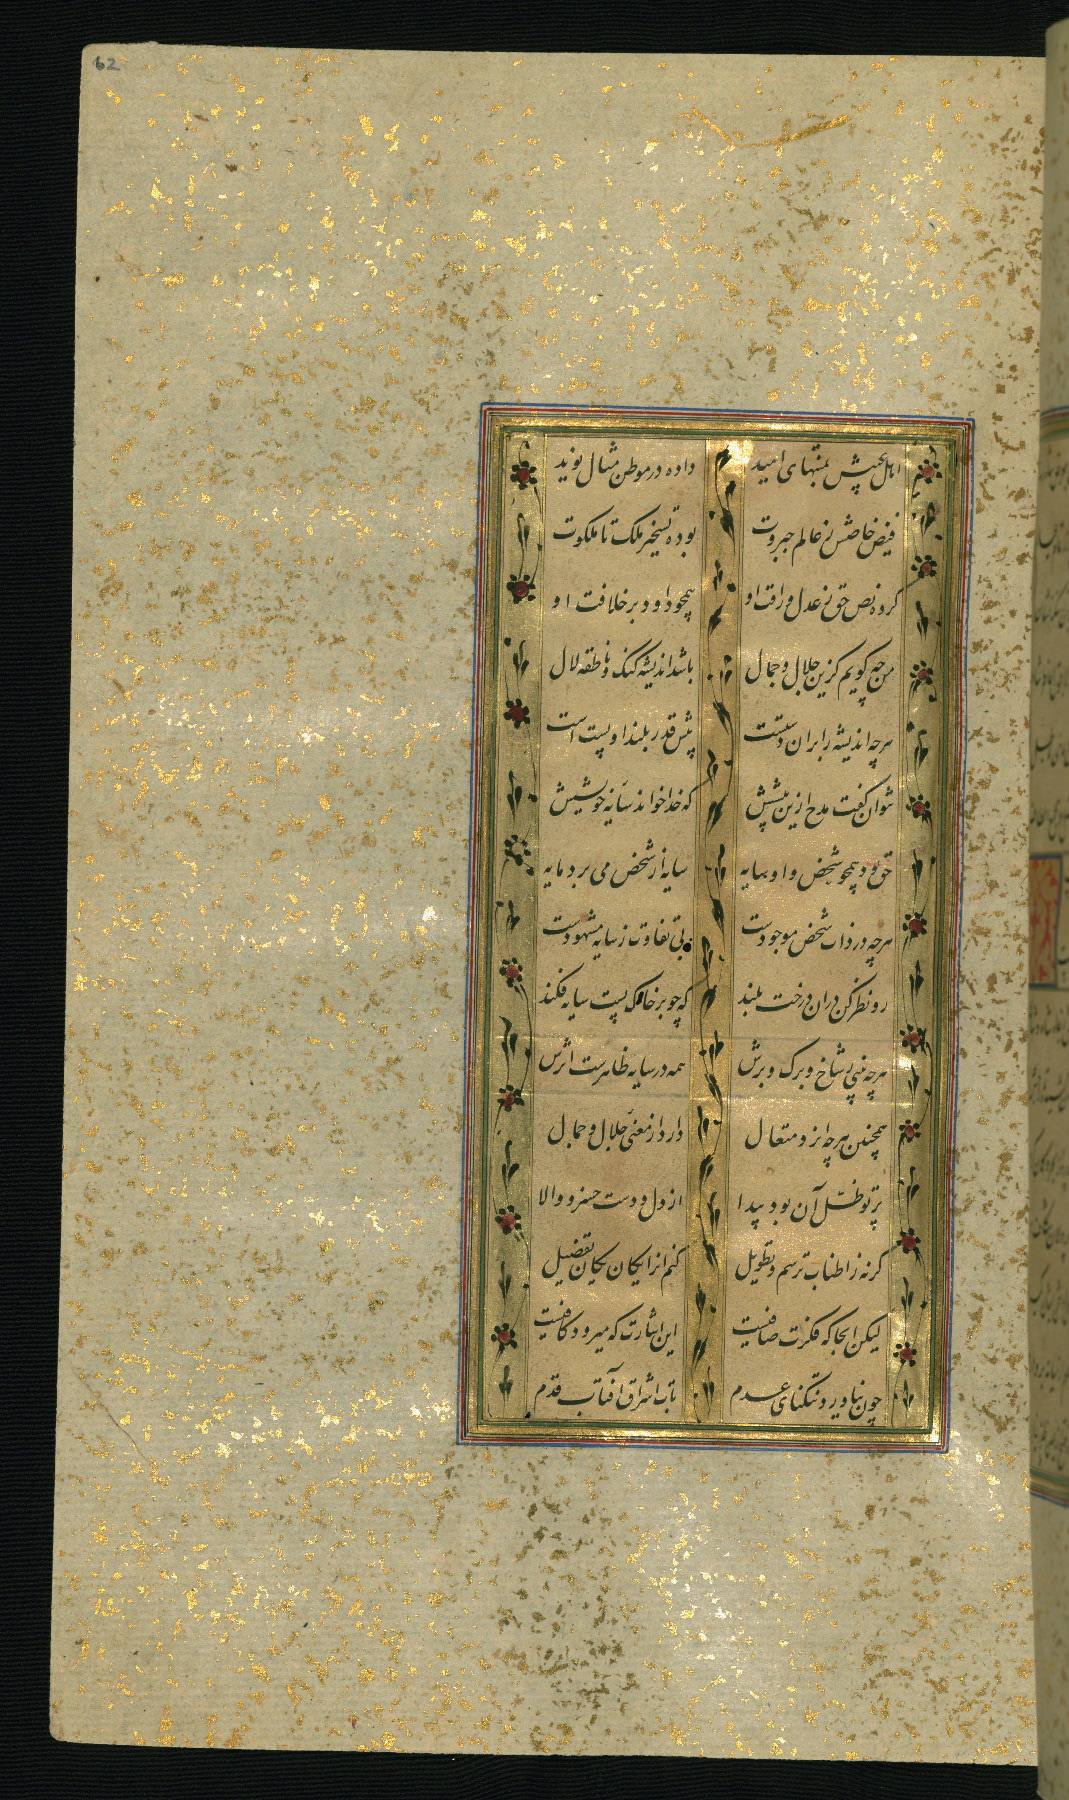 62
اهل بینش بمنتهای امید داده در موطن مثال نوید
فیض خاصش ز عالم جبروت بوده تسخیر ملک تا ملکوت
کرده نص حق ز عدل و رافت او همچو داود بر خلافت او
من چه کویم کزین جلال و جمال باشد اندیشه کنک و ناطقه لال
هرچه اندیشه را بران دستست پیش قدر بلند او پست است
نتوان کفت مدح ازین بیشش که خدا خواند سایه خویشش
حق بود همچو شخص و او سایه سایه از شخص می برد مایه
هرچه در ذات شخص موجودست بی تفاوت ز سایه مشهودست
رو نظر کن دران درخت بلند که چو بر خاک پست سایه فکند
هرچه بینی ز شاخ و برک و برش همه در سایه ظاهرست اثرش
همچنین هرچه ایزد متعال دارد از معنی جلال و جمال
پرتو ظل آن بود پیدا از دل و دست خسرو والا
کرنه ز اطناب ترسم و تطویل کنم انرا یکان یکان تفضیل
لیکن انجا که فکرت صافیست این اشارت که میرود کافیست
چون نیاورد تنکنای عدم تاب اشراق آفتاب قدم